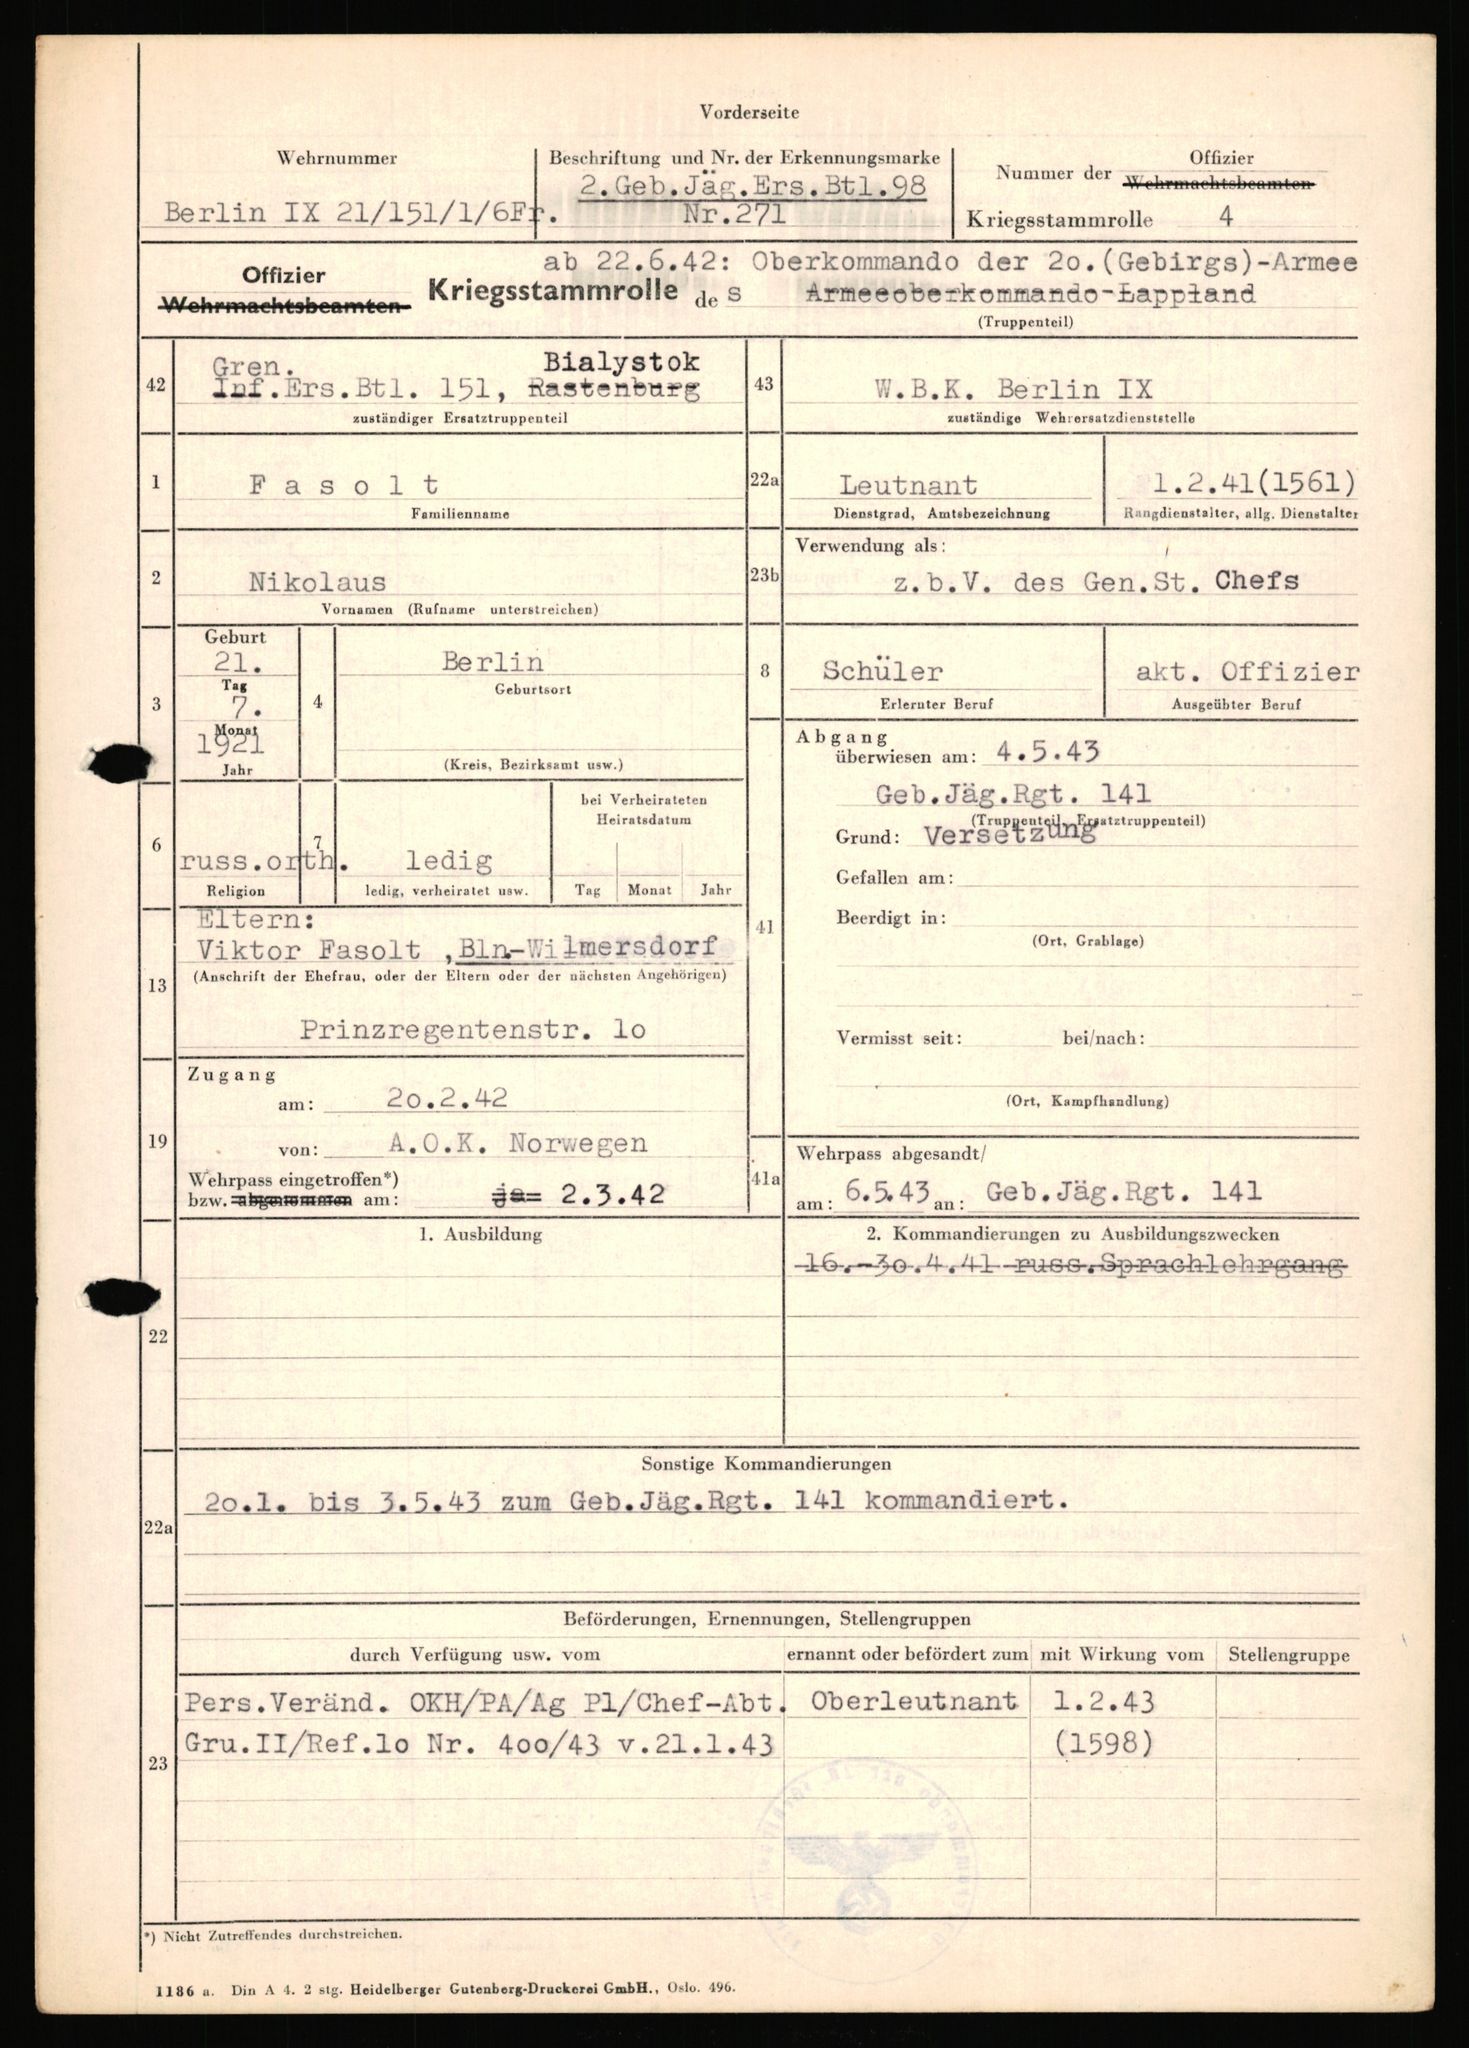 Vorderseite
Wehrnummer
Berlin IX 21/151/1/6Fr.
Beschriftung und Nr. der Erkennungsmarke
2.Geb.Jäg.Ers.Btl.98
Nr.271
Offizier
Nummer der Wehrmachtsbeamten
Kriegsstammrolle 4
ab 22.6.42: Oberkommando der 2o.(Gebirgs)-Armee
Offizier
Wehrmachtsbeamten Kriegsstammrolle des Armeeoberkommando-Lappland
(Truppenteil)
42
Gren. Bialystok
Inf.Ers.Btl. 151, Rastenburg
zuständiger Ersatztruppenteil
43
W.B.K. Berlin IX
zuständige Wehrersatzdienststelle
1
Fasolt
Familienname
22a
Leutnant
Dienstgrad, Amtsbezeichnung
1.2.41(1561)
Rangdienstalter, allg. Dienstalter
2
Nikolaus
Vornamen (Rufname unterstreichen)
23b
Verwendung als:
z.b.V. des Gen.St. Chefs
3
Geburt
21.
Tag
7.
Monat
1921
Jahr
4
Berlin
Geburtsort
(Kreis, Bezirksamt usw.)
8
Schüler
Erlernter Beruf
akt. Offizier
Ausgeübter Beruf
6
russ.orth.
Religion
7
ledig
ledig, verheiratet usw.
bei Verheirateten
Heiratsdatum
Tag Monat Jahr
41
Abgang
überwiesen am: 4.5.43
Geb.Jäg.Rgt. 141
(Truppenteil, Ersatztruppenteil)
Grund: Versetzung
Gefallen am:
Beerdigt in:
(Ort, Grablage)
Vermisst seit: bei/nach:
(Ort, Kampfhandlung)
13
Eltern:
Viktor Fasolt ,Bln.-Wilmersdorf
(Anschrift der Ehefrau, oder der Eltern oder der nächsten Angehörigen)
Prinzregentenstr. 1o
19
Zugang
am: 2o.2.42
von: A.O.K. Norwegen
Wehrpass eingetroffen*)
bzw. abgenommen am: ja= 2.3.42
41a
Wehrpass abgesandt/
am: 6.5.43 an: Geb.Jäg.Rgt. 141
22
1. Ausbildung
2. Kommandierungen zu Ausbildungszwecken
16.-3o.4.41 russ.Sprachlehrgang
22a
Sonstige Kommandierungen
2o.1. bis 3.5.43 zum Geb.Jäg.Rgt. 141 kommandiert.
23
Beförderungen, Ernennungen, Stellengruppen
durch Verfügung usw. vom ernannt oder befördert zum mit Wirkung vom Stellengruppe
Pers.Veränd. OKH/PA/Ag Pl/Chef-Abt. Oberleutnant 1.2.43
Gru.II/Ref.1o Nr. 4oo/43 v.21.1.43 (1598)
*) Nicht Zutreffendes durchstreichen.
1186 a. Din A 4. 2 stg. Heidelberger Gutenberg-Druckerei GmbH., Oslo. 496.